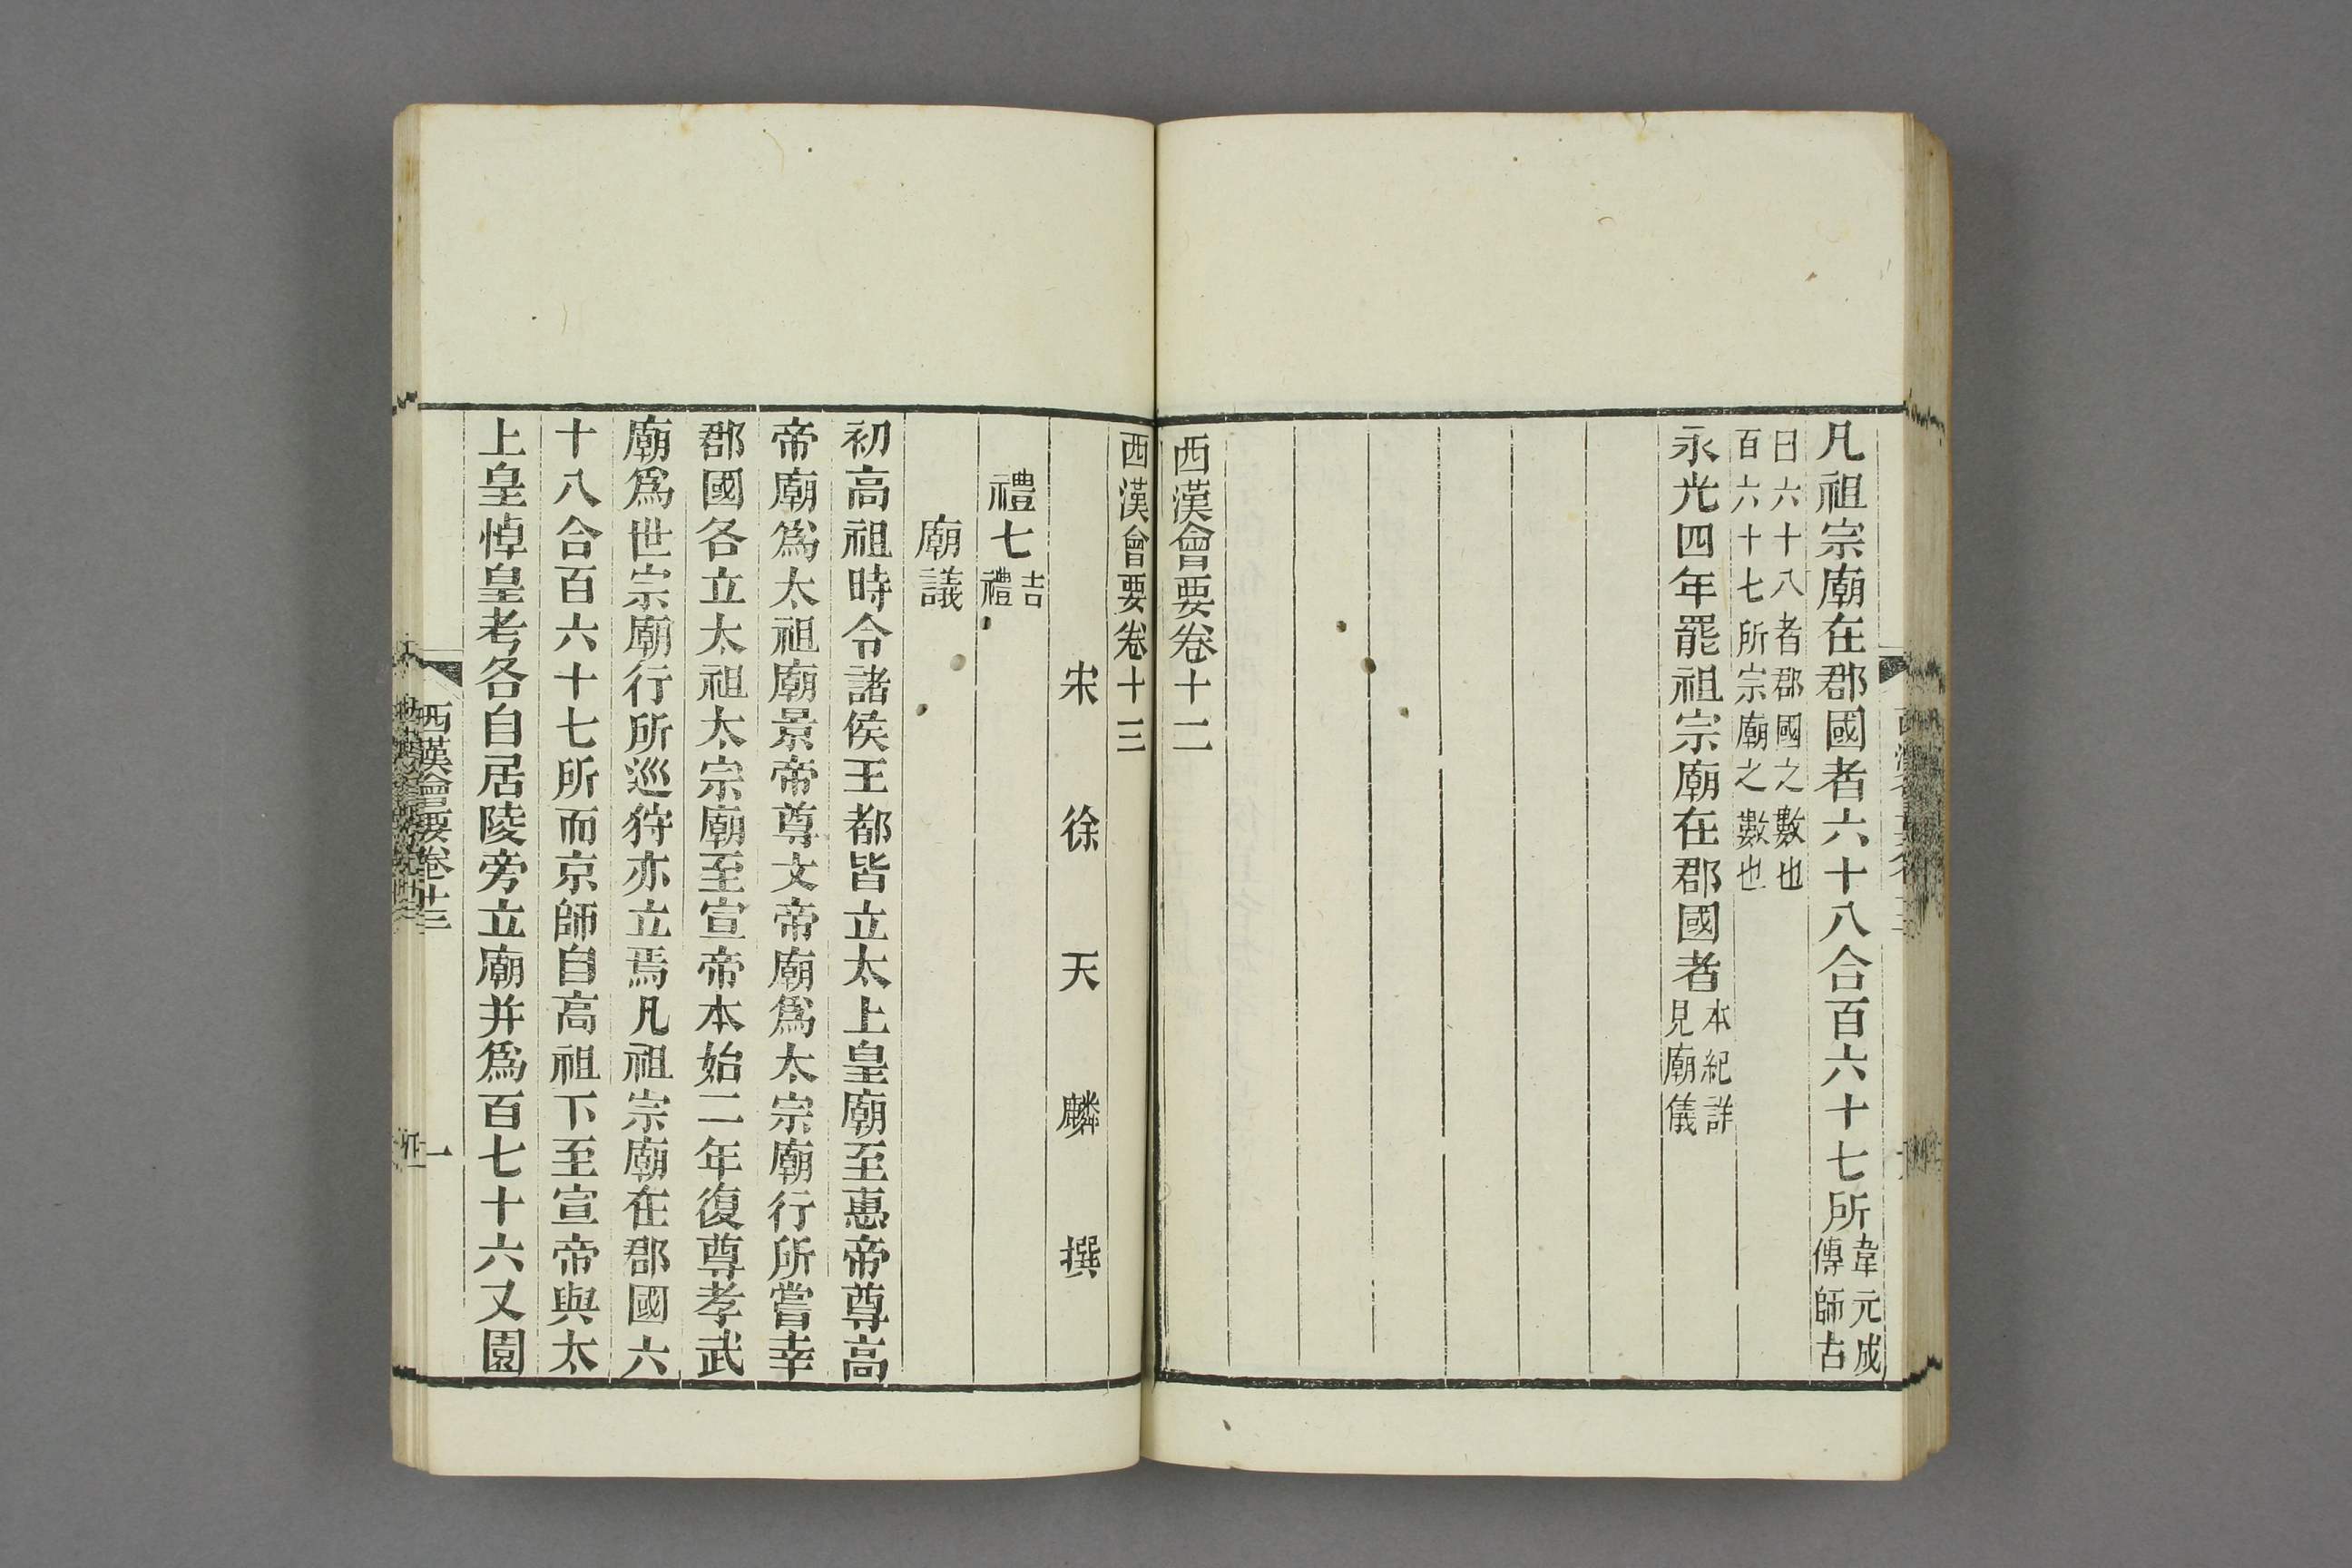 凡祖宗廟在郡國者六十八合百六十七所韋元成傳師古
曰六十八者郡國之數也百六十七所宗廟之數也
永光四年罷祖宗廟在郡國者本紀詳見廟儀
西漢會要卷十二
西漢會要卷十三
宋徐天麟撰
禮七吉禮
廟議
初高祖時令諸侯王都皆立太上皇廟至惠帝尊高
帝廟爲太祖廟景帝尊文帝廟爲太宗廟行所嘗幸
郡國各立太祖太宗廟至宣帝本始二年復尊孝武
廟爲世宗廟行所巡狩亦立焉凡祖宗廟在郡國六
十八合百六十七所而京師自高祖下至宣帝與太
上皇悼皇考各自居陵旁立廟并爲百七十六又園
西漢會要卷十三
一